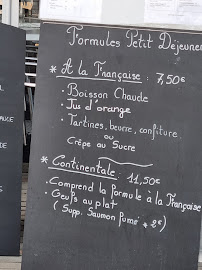 Formules Petit Déjeuner
* À la Française : 7,50€
• Boisson Chaude
• Jus d'orange
• Tartines, beurre, confiture
ou
Crêpe au Sucre
* Continentale : 11,50€
• Comprend la formule à la Française
• Oeufs au plat
( Supp. Saumon fumé + 2€)